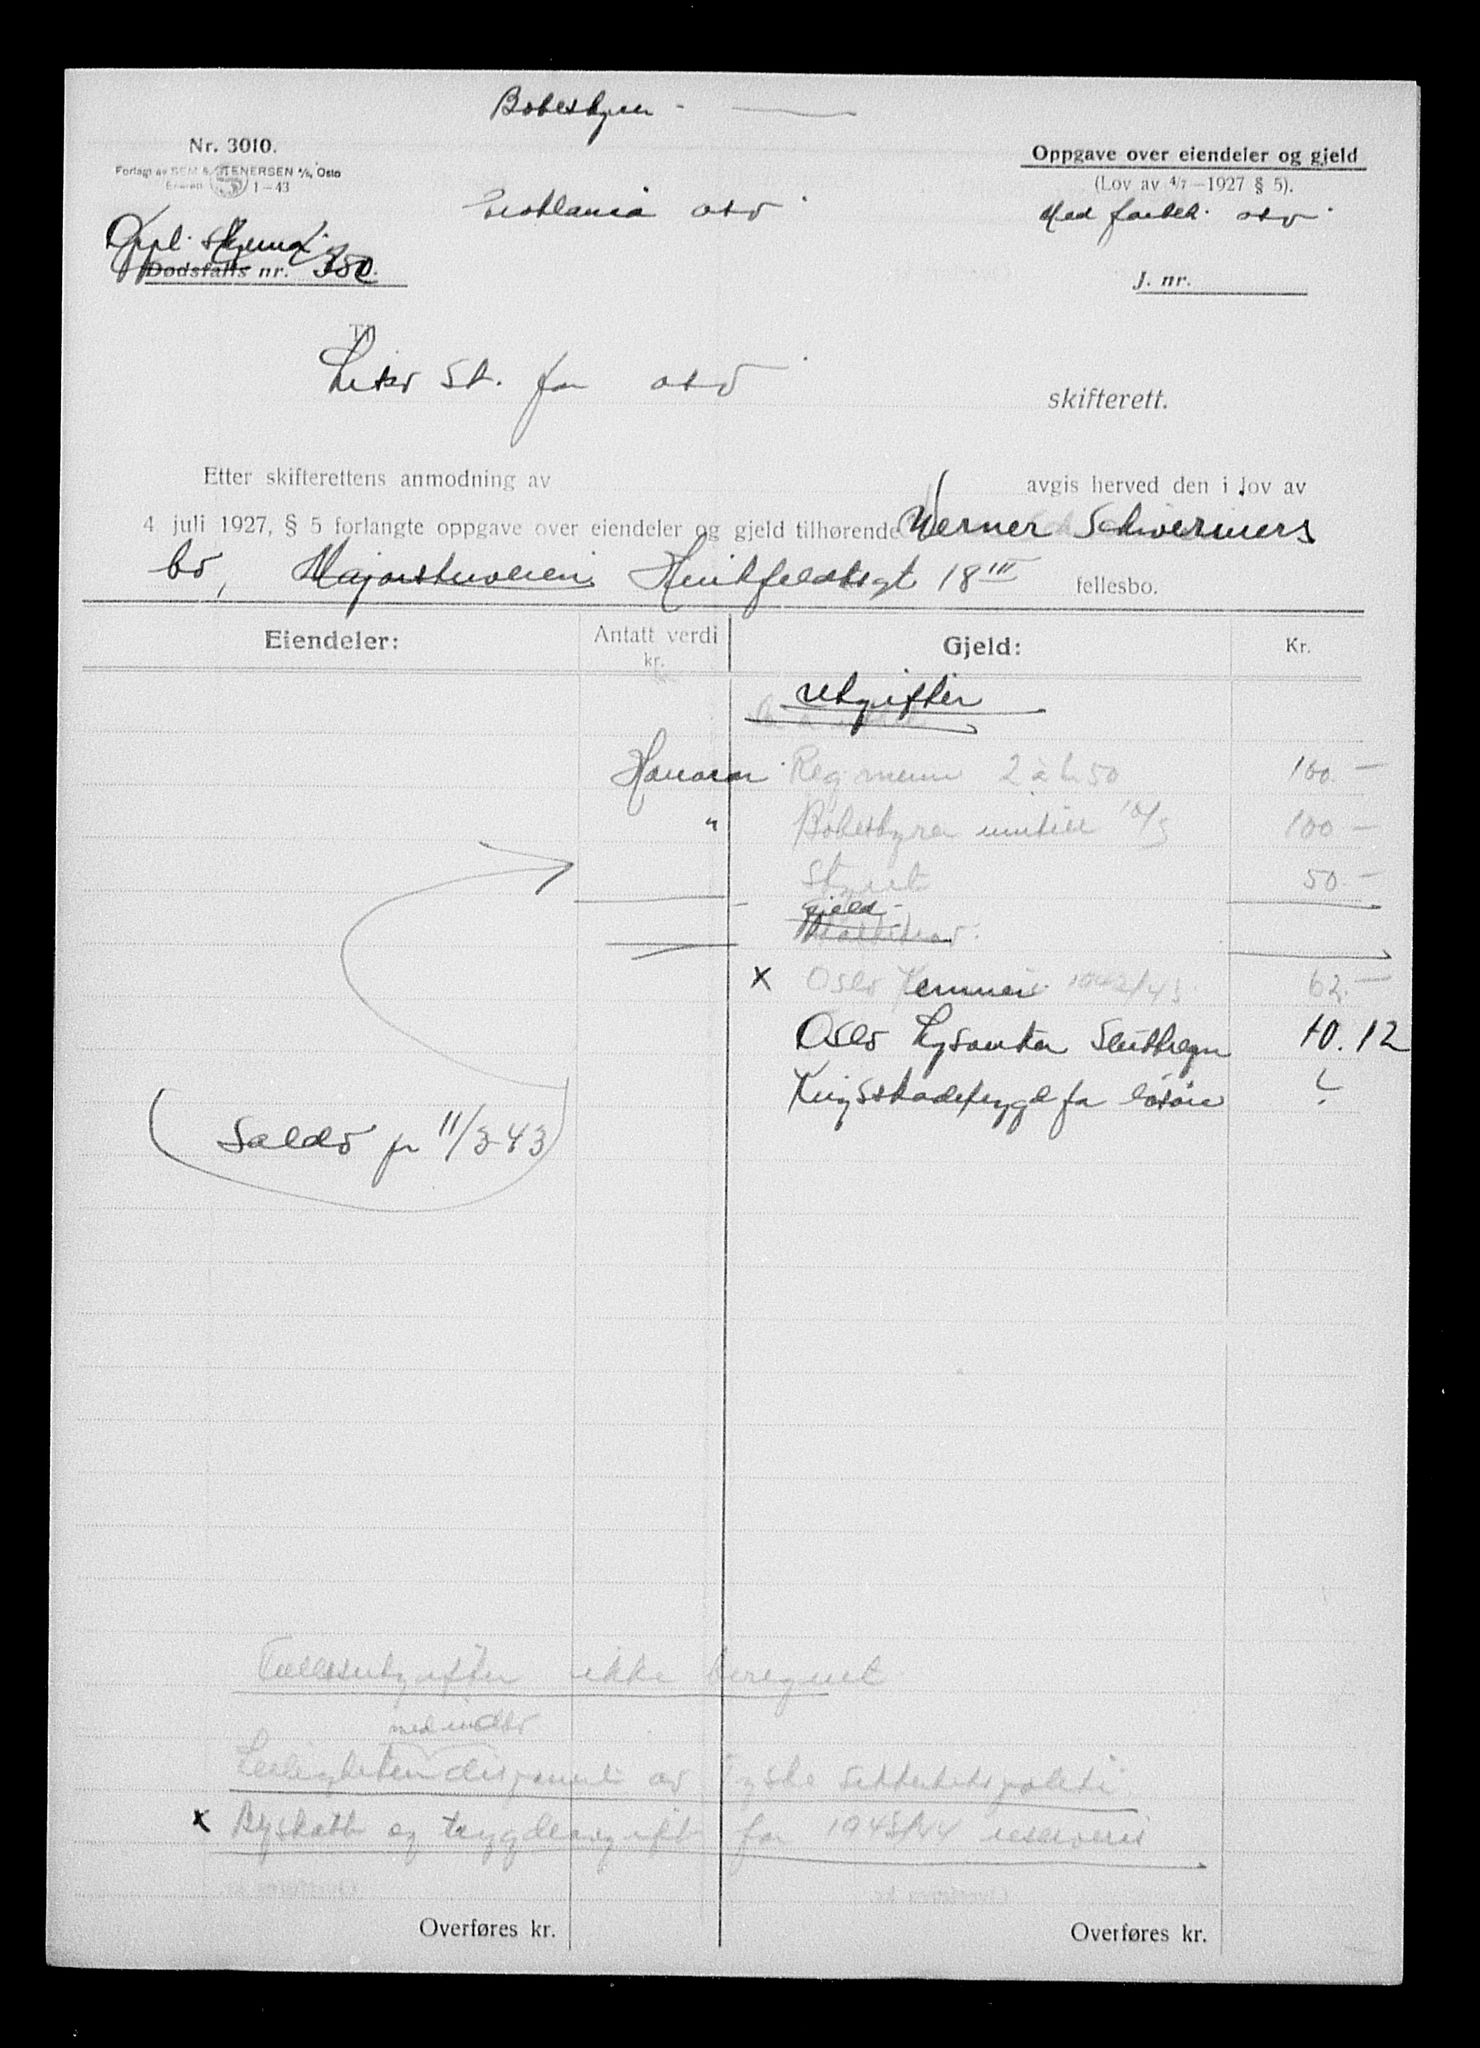 Bobestyrer -
Nr. 3010.
Forlagt av SEM & STENERSEN A/S, Oslo
1-43
Oppgave over eiendeler og gjeld
(Lov av 4/7-1927 § 5).
osv.
Med forbeh. osv.
Oppl. skjema
Dødsfalls nr. 350.
J. nr.
Til
Likv St. for osv
skifterett.
Etter skifterettens anmodning av avgis herved den i lov av
4 juli 1927, § 5 forlangte oppgave over eiendeler og gjeld tilhørende Werner Schweriners
bo, Majorstuveien Huitfeldtsgt 18 III fellesbo.
Eiendeler: Antatt verdi kr. Gjeld: Kr.
Utgifter
Honorar Reg menn 2 à kr 50 100.-
" Bobestyrer inntill 10/5 100-
Styret 50.-
gjeld.
x Oslo Kemner 1942/43 62.-
Oslo Lysverker Sluttregn 10.12
Krigsskadetrygd for løsøre ?
(Saldo pr 11/3-43)
Fellesutgifter ikke beregnet
med innbo
Leiligheten disponert av Tyske Sikkerhetspoliti
x Byskatt og trygdeavgift for 1943/44 reserveres
Overføres kr. Overføres kr.